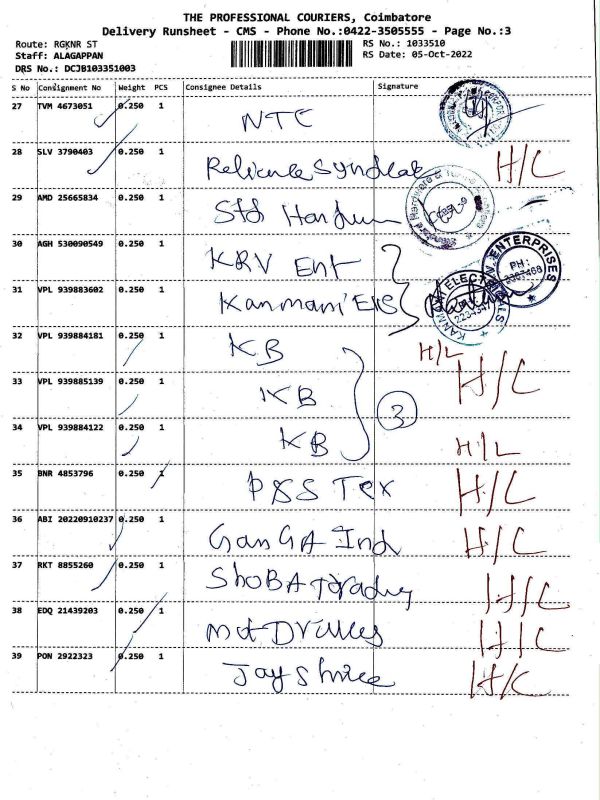 THE PROFESSIONAL COURIERS, Coimbatore
Delivery Runsheet - CMS - Phone No.:0422-3505555 - Page No.:3
Route: RGKNR ST
RS No.: 1033510
Staff: ALAGAPPAN
RS Date: 05-Oct-2022
DRS No.: DCJB103351003
S No Consignment No Weight PCS Consignee Details Signature
27 TVM 4673051 0.250 1 NTC
28 SLV 3790403 0.250 1 Reliance Syndicate H/C
29 AMD 25665834 0.250 1 Std
30 AGH 530090549 0.250 1 KRV Ent
ENTERPRISES
PH:
31 VPL 939883602 0.250 1 Kanmani Ele
32 VPL 939884181 0.250 1 KB H/L
33 VPL 939885139 0.250 1 KB H/C
3
34 VPL 939884122 0.250 1 KB H/L
35 BNR 4853796 0.250 1 PSS Tex H/C
36 ABI 20220910237 0.250 1 GanGA Ind H/C
37 RKT 8855260 0.250 1 ShoBA Trading H/C
38 EDQ 21439203 0.250 1 H/C
39 PON 2922323 0.250 1 Jay Shree H/C